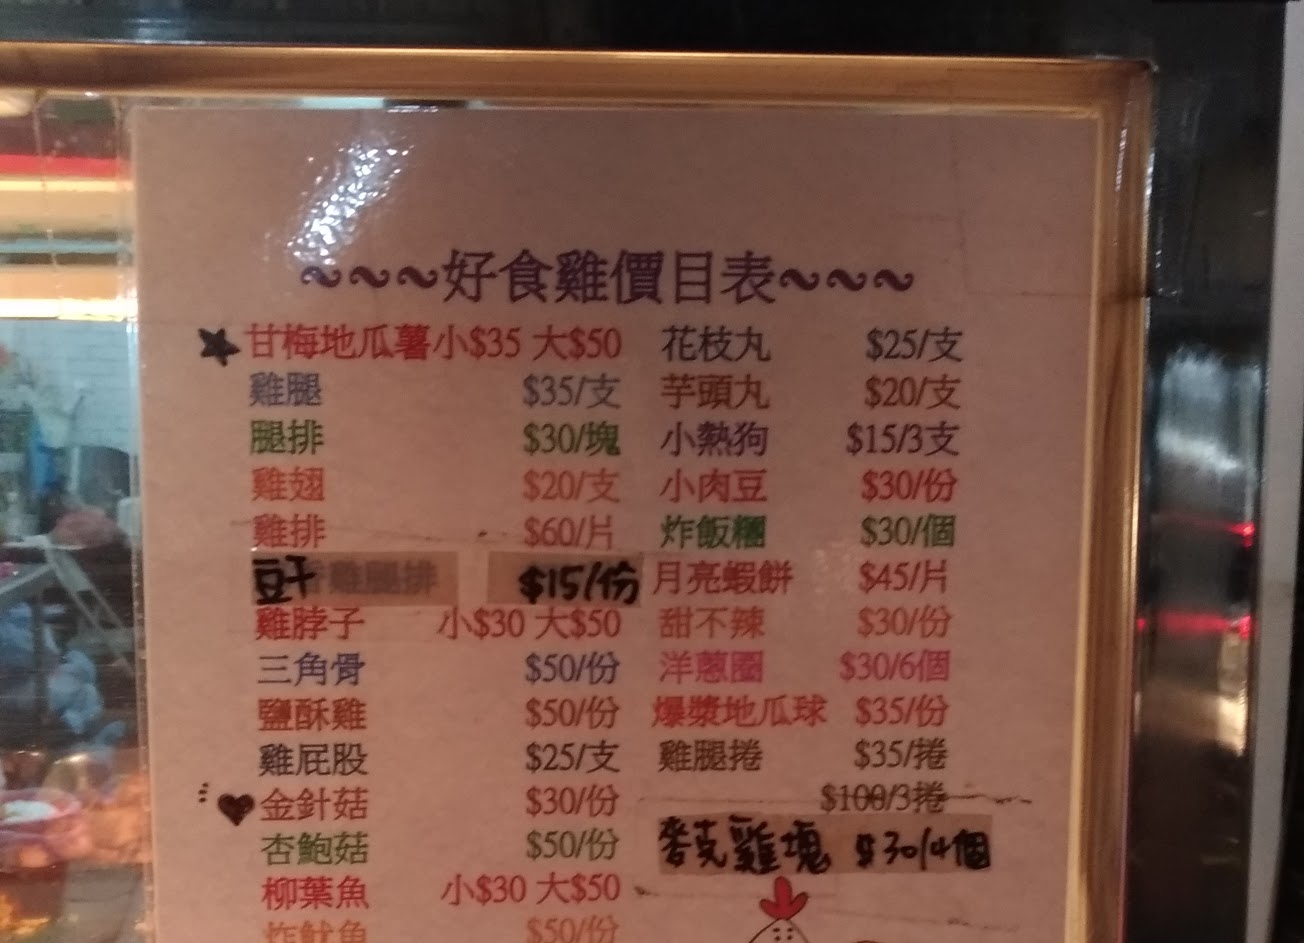 ~~~好食雞價目表~~~
甘梅地瓜薯小$35 大$50
雞腿 $35/支
腿排 $30/塊
雞翅 $20/支
雞排 $60/片
豆干 雞腿排 $15/份
雞脖子 小$30 大$50
三角骨 $50/份
鹽酥雞 $50/份
雞屁股 $25/支
金針菇 $30/份
杏鮑菇 $50/份
柳葉魚 小$30 大$50
炸魷魚 $50/份
花枝丸 $25/支
芋頭丸 $20/支
小熱狗 $15/3支
小肉豆 $30/份
炸飯糰 $30/個
月亮蝦餅 $45/片
甜不辣 $30/份
洋蔥圈 $30/6個
爆漿地瓜球 $35/份
雞腿捲 $35/捲
$100/3捲
麥克雞塊 $30/4個